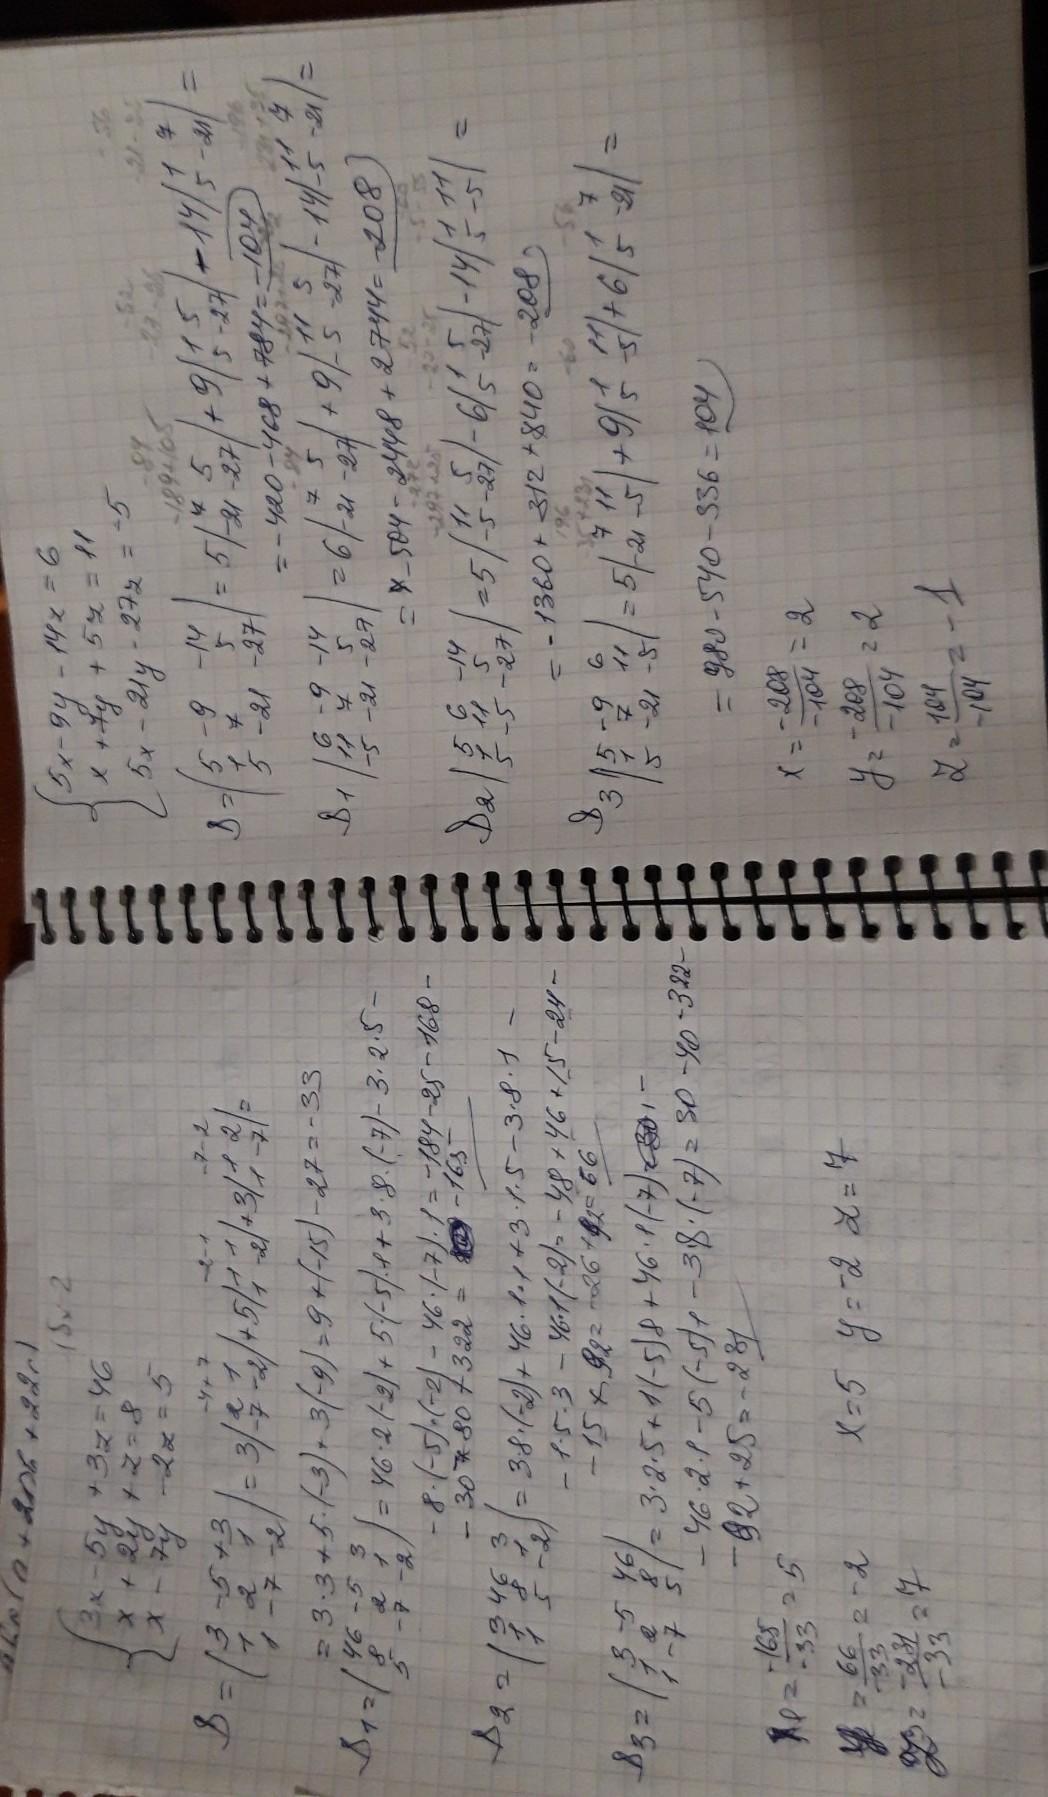 3x - 5y + 3z = 46
x + 2y + z = 8
x - 7y - 2z = 5
Δ = | 3 -5 +3
1 2 1
1 -7 -2 | = 3 | 2 1
-7 -2 | + 5 | 1 1
1 -2 | + 3 | 1 2
1 -7 | =
= 3·3 + 5·(-3) + 3(-9) = 9 + (-15) - 27 = -33
Δ1 = | 46 -5 3
8 2 1
5 -7 -2 | = 46·2(-2) + 5·(-5)·1 + 3·8·(-7) - 3·2·5 -
- 8·(-5)·(-2) - 46·(-7)·1 = -184 - 25 - 168 -
- 30 - 80 + 322 = -165
Δ2 = | 3 46 3
1 8 1
1 5 -2 | = 3·8·(-2) + 46·1·1 + 3·1·5 - 3·8·1 -
- 1·5·3 - 46·1(-2) = -48 + 46 + 15 - 24 -
- 15 + 92 = -26 + 92 = 66
Δ3 = | 3 -5 46
1 2 8
1 -7 5 | = 3·2·5 + 1(-5)8 + 46·1(-7) -
- 46·2·1 - 5(-5)1 - 3·8·(-7) = 30 - 40 - 322 -
- 92 + 25 = -231
= -165/-33 = 5
= 66/-33 = -2
= -231/-33 = 7
x = 5 y = -2 z = 7
5x - 9y - 14z = 6
x + 7y + 5z = 11
5x - 21y - 27z = -5
Δ = | 5 -9 -14
1 7 5
5 -21 -27 | = 5 | 7 5
-21 -27 | + 9 | 1 5
5 -27 | - 14 | 1 7
5 -21 | =
= -420 - 468 + 784 = -104
Δ1 | 6 -9 -14
11 7 5
-5 -21 -27 | = 6 | 7 5
-21 -27 | + 9 | 11 5
-5 -27 | - 14 | 11 7
-5 -21 | =
= -504 - 2448 + 2744 = -208
Δ2 | 5 6 -14
1 11 5
5 -5 -27 | = 5 | 11 5
-5 -27 | - 6 | 1 5
5 -27 | - 14 | 1 11
5 -5 | =
= -1360 + 312 + 840 = -208
Δ3 | 5 -9 6
1 7 11
5 -21 -5 | = 5 | 7 11
-21 -5 | + 9 | 1 11
5 -5 | + 6 | 1 7
5 -21 | =
= 980 - 540 - 336 = 104
x = -208/-104 = 2
y = -208/-104 = 2
z = 104/-104 = -1